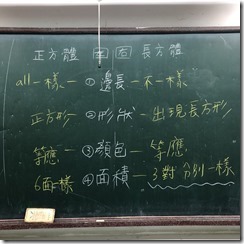 正方體 面面 長方體
all一樣 — ①邊長 — 不一樣
正方形 — ②形狀 — 出現長方形
等應 — ③顏色 — 等應
6面一樣 ④面積 — 3對分別一樣